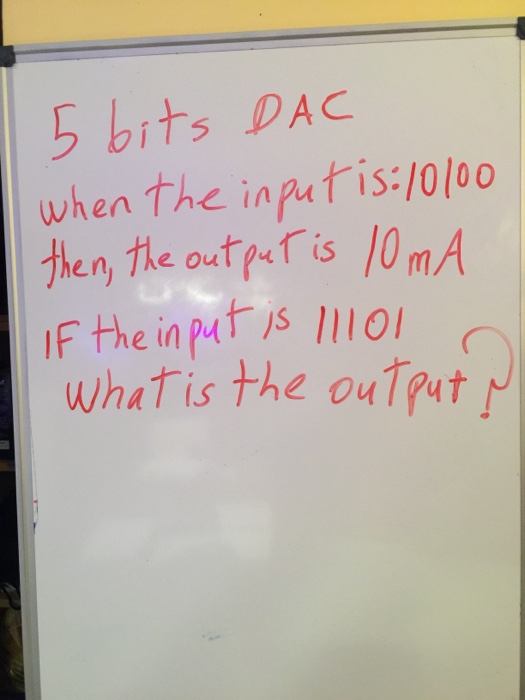 5 bits DAC
when the input is:10100
then, the output is 10mA
IF the input is 11101
What is the output?